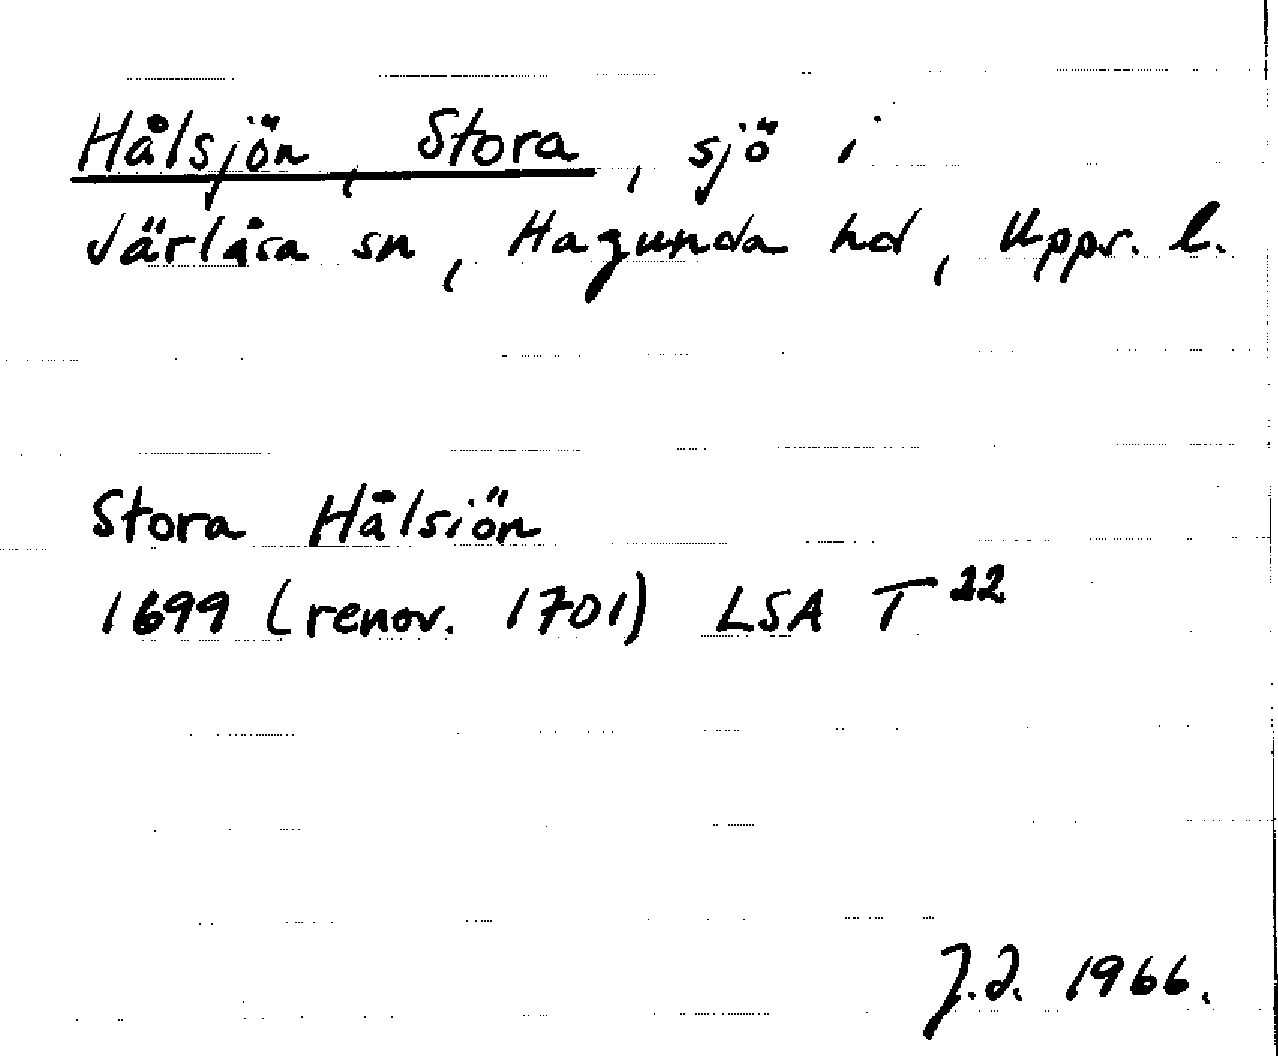 Hålsjön, Stora, sjö i
Järlåsa sn, Hagunda hd, Upps. l.
Stora Hålsiön
1699 (renov. 1701) LSA T 22
J.I. 1966.